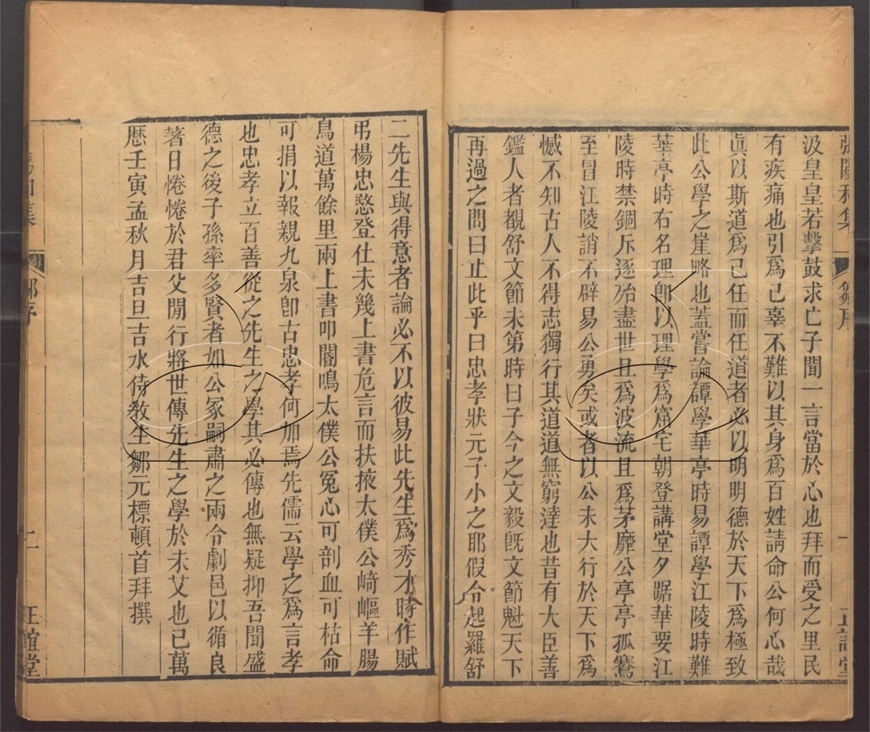 張陽和集
鄒序
一
正誼堂
汲皇皇若擊鼓求亡子聞一言當於心也拜而受之里民
有疾痛也引爲已辜不難以其身爲百姓請命公何心哉
眞以斯道爲已任而任道者必以明明德於天下爲極致
此公學之崖略也葢嘗論譚學華亭時易譚學江陵時難
華亭時右名理卽以理學爲窟宅朝登講堂夕踞華要江
陵時禁錮斥逐殆盡世且爲波流且爲茅靡公亭亭孤騫
至冒江陵誚不辟易公勇矣或者以公未大行於天下爲
憾不知古人不得志獨行其道道無窮達也昔有大臣善
鑑人者覩舒文節未第時曰子今之文毅旣文節魁天下
再過之問曰止此乎曰忠孝狀元子小之耶假令起羅舒
二先生與得意者論必不以彼易此先生爲秀才時作賦
弔楊忠愍登仕未幾上書危言而扶掖太僕公崎嶇羊腸
鳥道萬餘里兩上書叩閽鳴太僕公冤心可剖血可枯命
可捐以報親九泉卽古忠孝何加焉先儒云學之爲言孝
也忠孝立百善從之先生之學其必傳也無疑抑吾聞盛
德之後子孫率多賢者如公冢嗣肅之兩令劇邑以循良
著日惓惓於君父閒行將世傳先生之學於未艾也已萬
歷壬寅孟秋月吉旦吉水侍教生鄒元標頓首拜撰
陽和集
鄒序
二
正誼堂